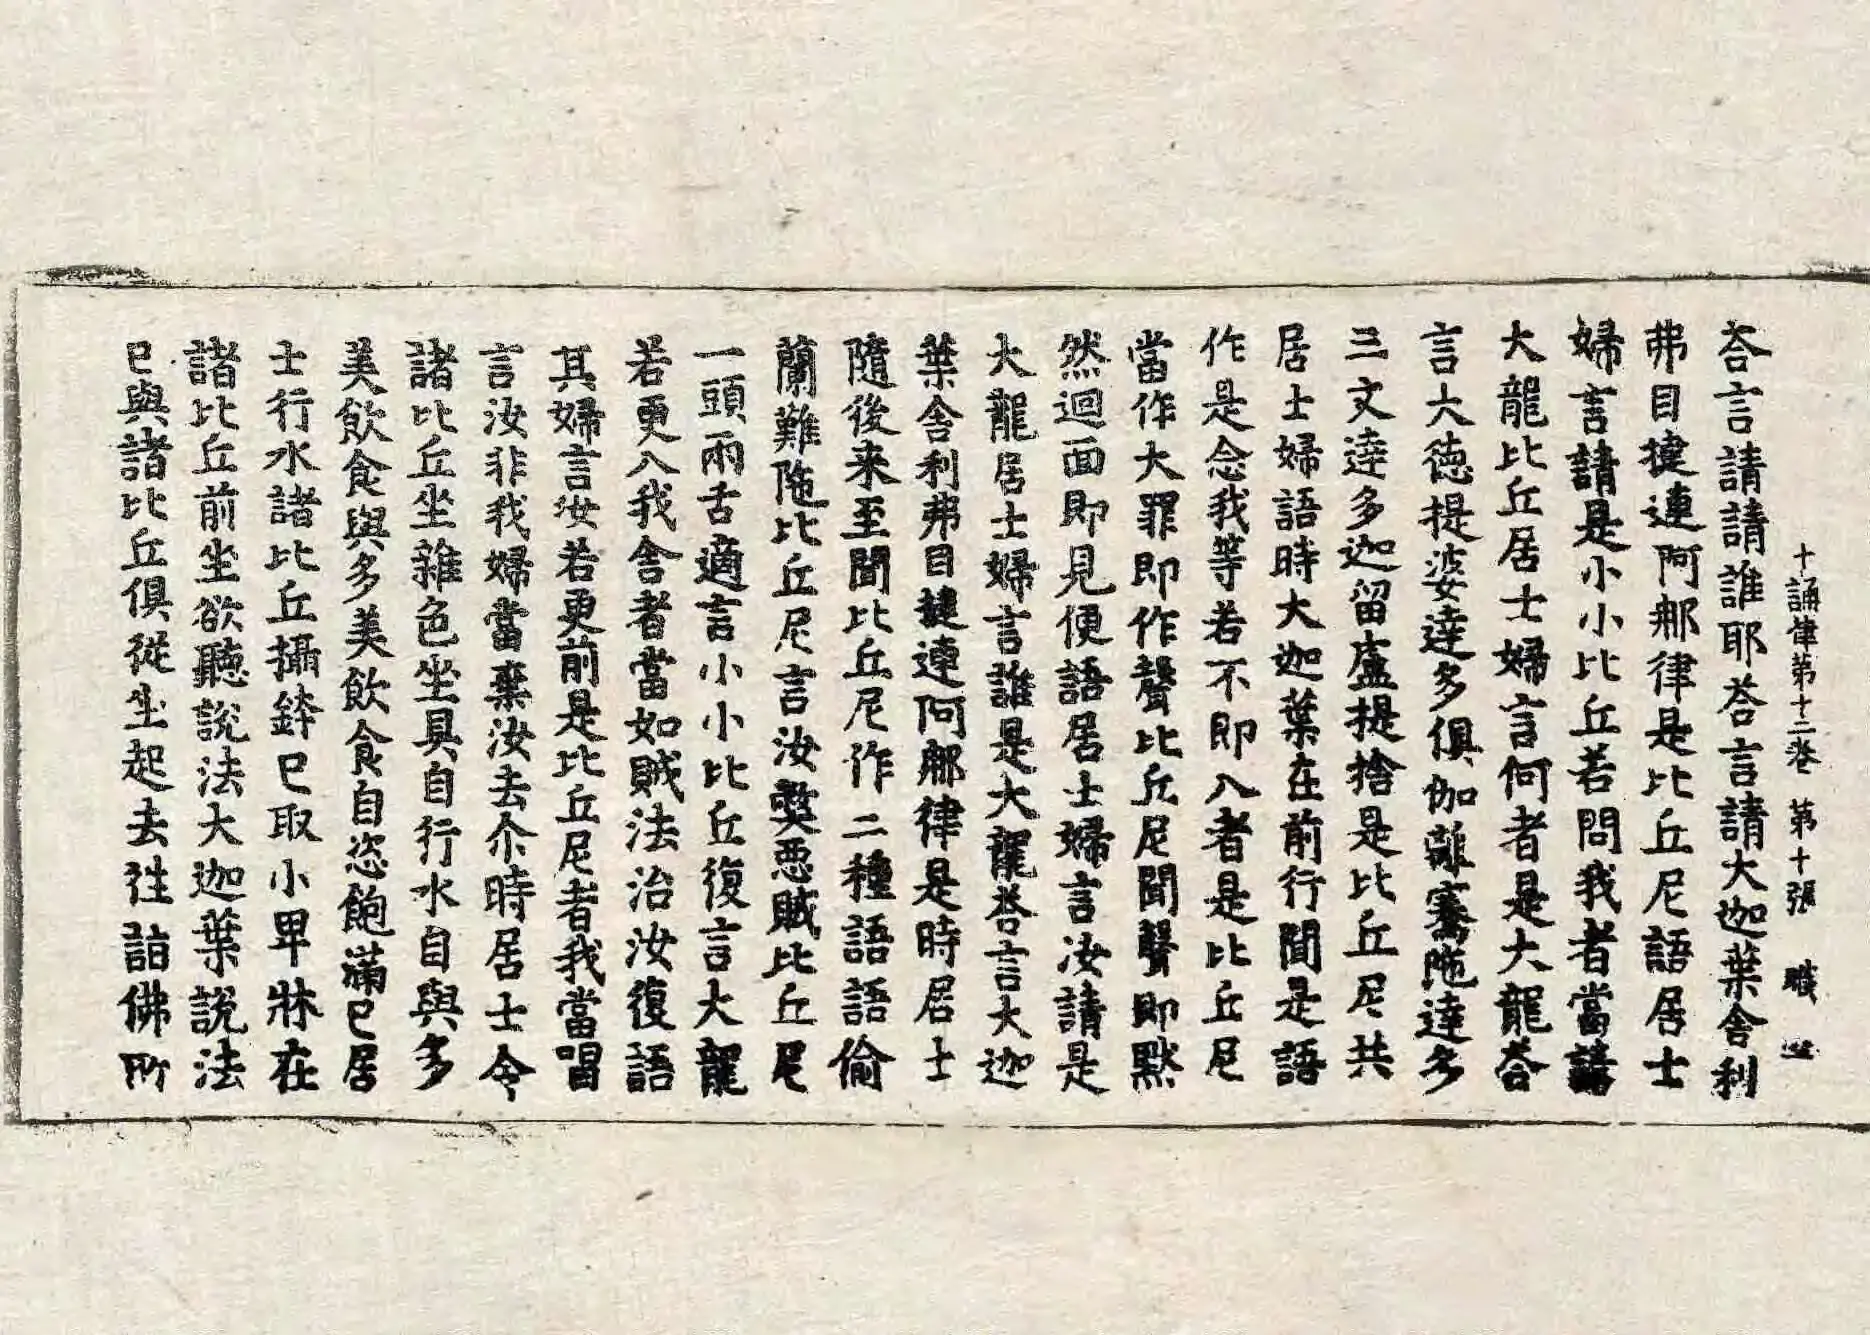 十誦律第十二卷 第十張 職
荅言請請誰耶荅言請大迦葉舍利
弗目揵連阿那律是比丘尼語居士
婦言請是小小比丘若問我者當請
大龍比丘居士婦言何者是大龍荅
言大德提婆達多俱伽離騫陁達多
三文達多迦留盧提捨是比丘尼共
居士婦語時大迦葉在前行聞是語
作是念我等若不即入者是比丘尼
當作大罪即作聲比丘尼聞聲即默
然迴面即見便語居士婦言汝請是
大龍居士婦言誰是大龍荅言大迦
葉舍利弗目揵連阿那律是時居士
隨後来至聞比丘尼作二種語語偷
蘭難陁比丘尼言汝獘惡賊比丘尼
一頭兩舌適言小小比丘復言大龍
若更入我舍者當如賊法治汝復語
其婦言汝若更前是比丘尼者我當唱
言汝非我婦當棄汝去尒時居士令
諸比丘坐雜色坐具自行水自與多
美飲食與多美飲食自恣飽滿已居
士行水諸比丘攝鉢已取小卑牀在
諸比丘前坐欲聽說法大迦葉說法
已與諸比丘俱從坐起去往詣佛所